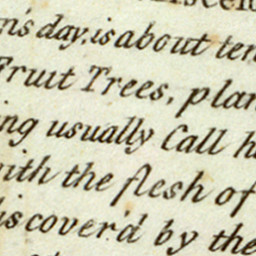 day, is about
Fruit Trees,
usually Call
with the flesh of
discover'd by the